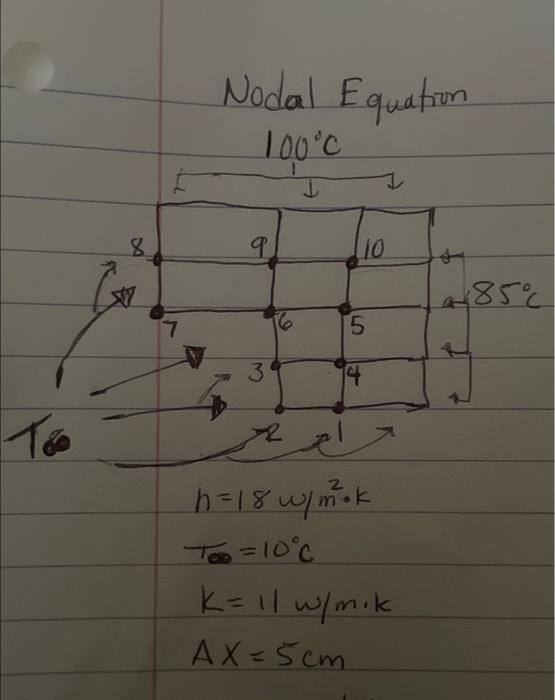 Nodal Equation
100°C
8 9 10
85°C
7 6 5
3 4
T∞ 2 1
h=18 w/m²·k
T∞=10°C
K=11 w/m·k
ΔX=5cm